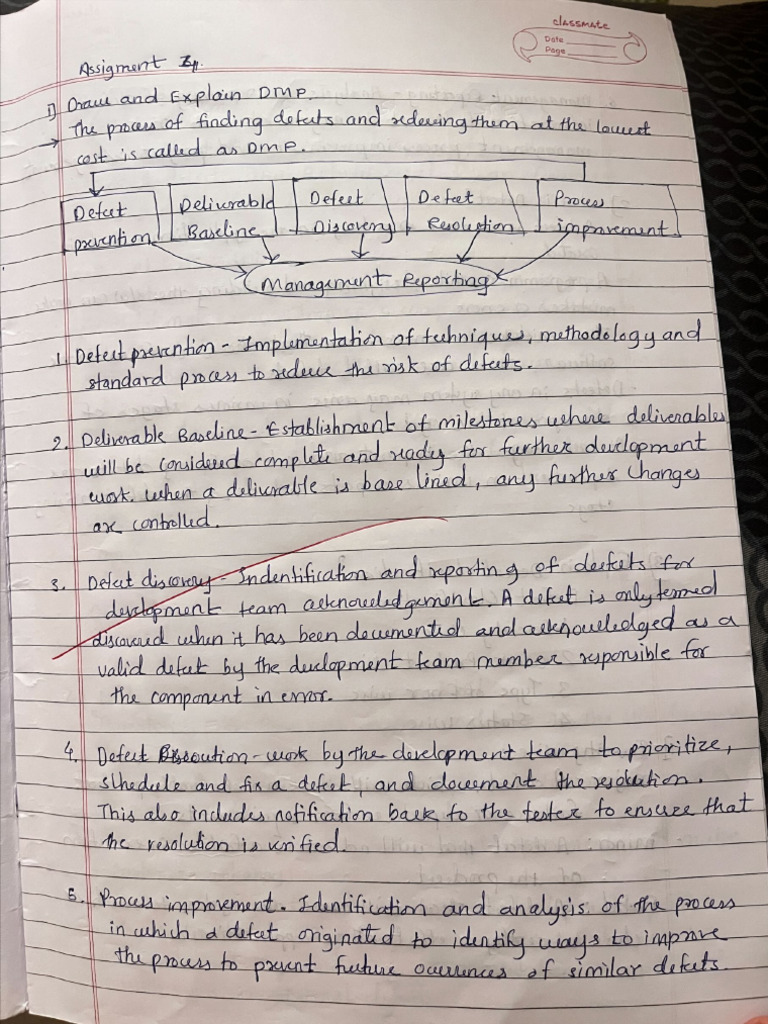 classmate
Date
Page
Assigment
1) Draw and Explain DMP.
→ The process of finding defects and reducing them at the lowest
cost is called as DMP.
Defect Deliverable Defect Defect Process
prevention Baseline Discovery Resolution improvement
Management Reporting
1. Defect prevention - Implementation of techniques, methodology and
standard process to reduce the risk of defects.
2. Deliverable Baseline - Establishment of milestones where deliverables
will be considered complete and ready for further development
work. when a deliverable is base lined, any further changes
are controlled.
3. Defect discovery - Indentification and reporting of deefcts for
development team acknowledgement. A defect is only termed
discovered when it has been documented and acknowledged as a
valid defect by the development team member responsible for
the component in error.
4. Defect - work by the development team to prioritize,
schedule and fix a defect, and document the resolution.
This also includes notification back to the tester to ensure that
the resolution is verified.
5. Process improvement. Identification and analysis of the process
in which a defect originated to identify ways to improve
the process to prevent future occurences of similar defects.